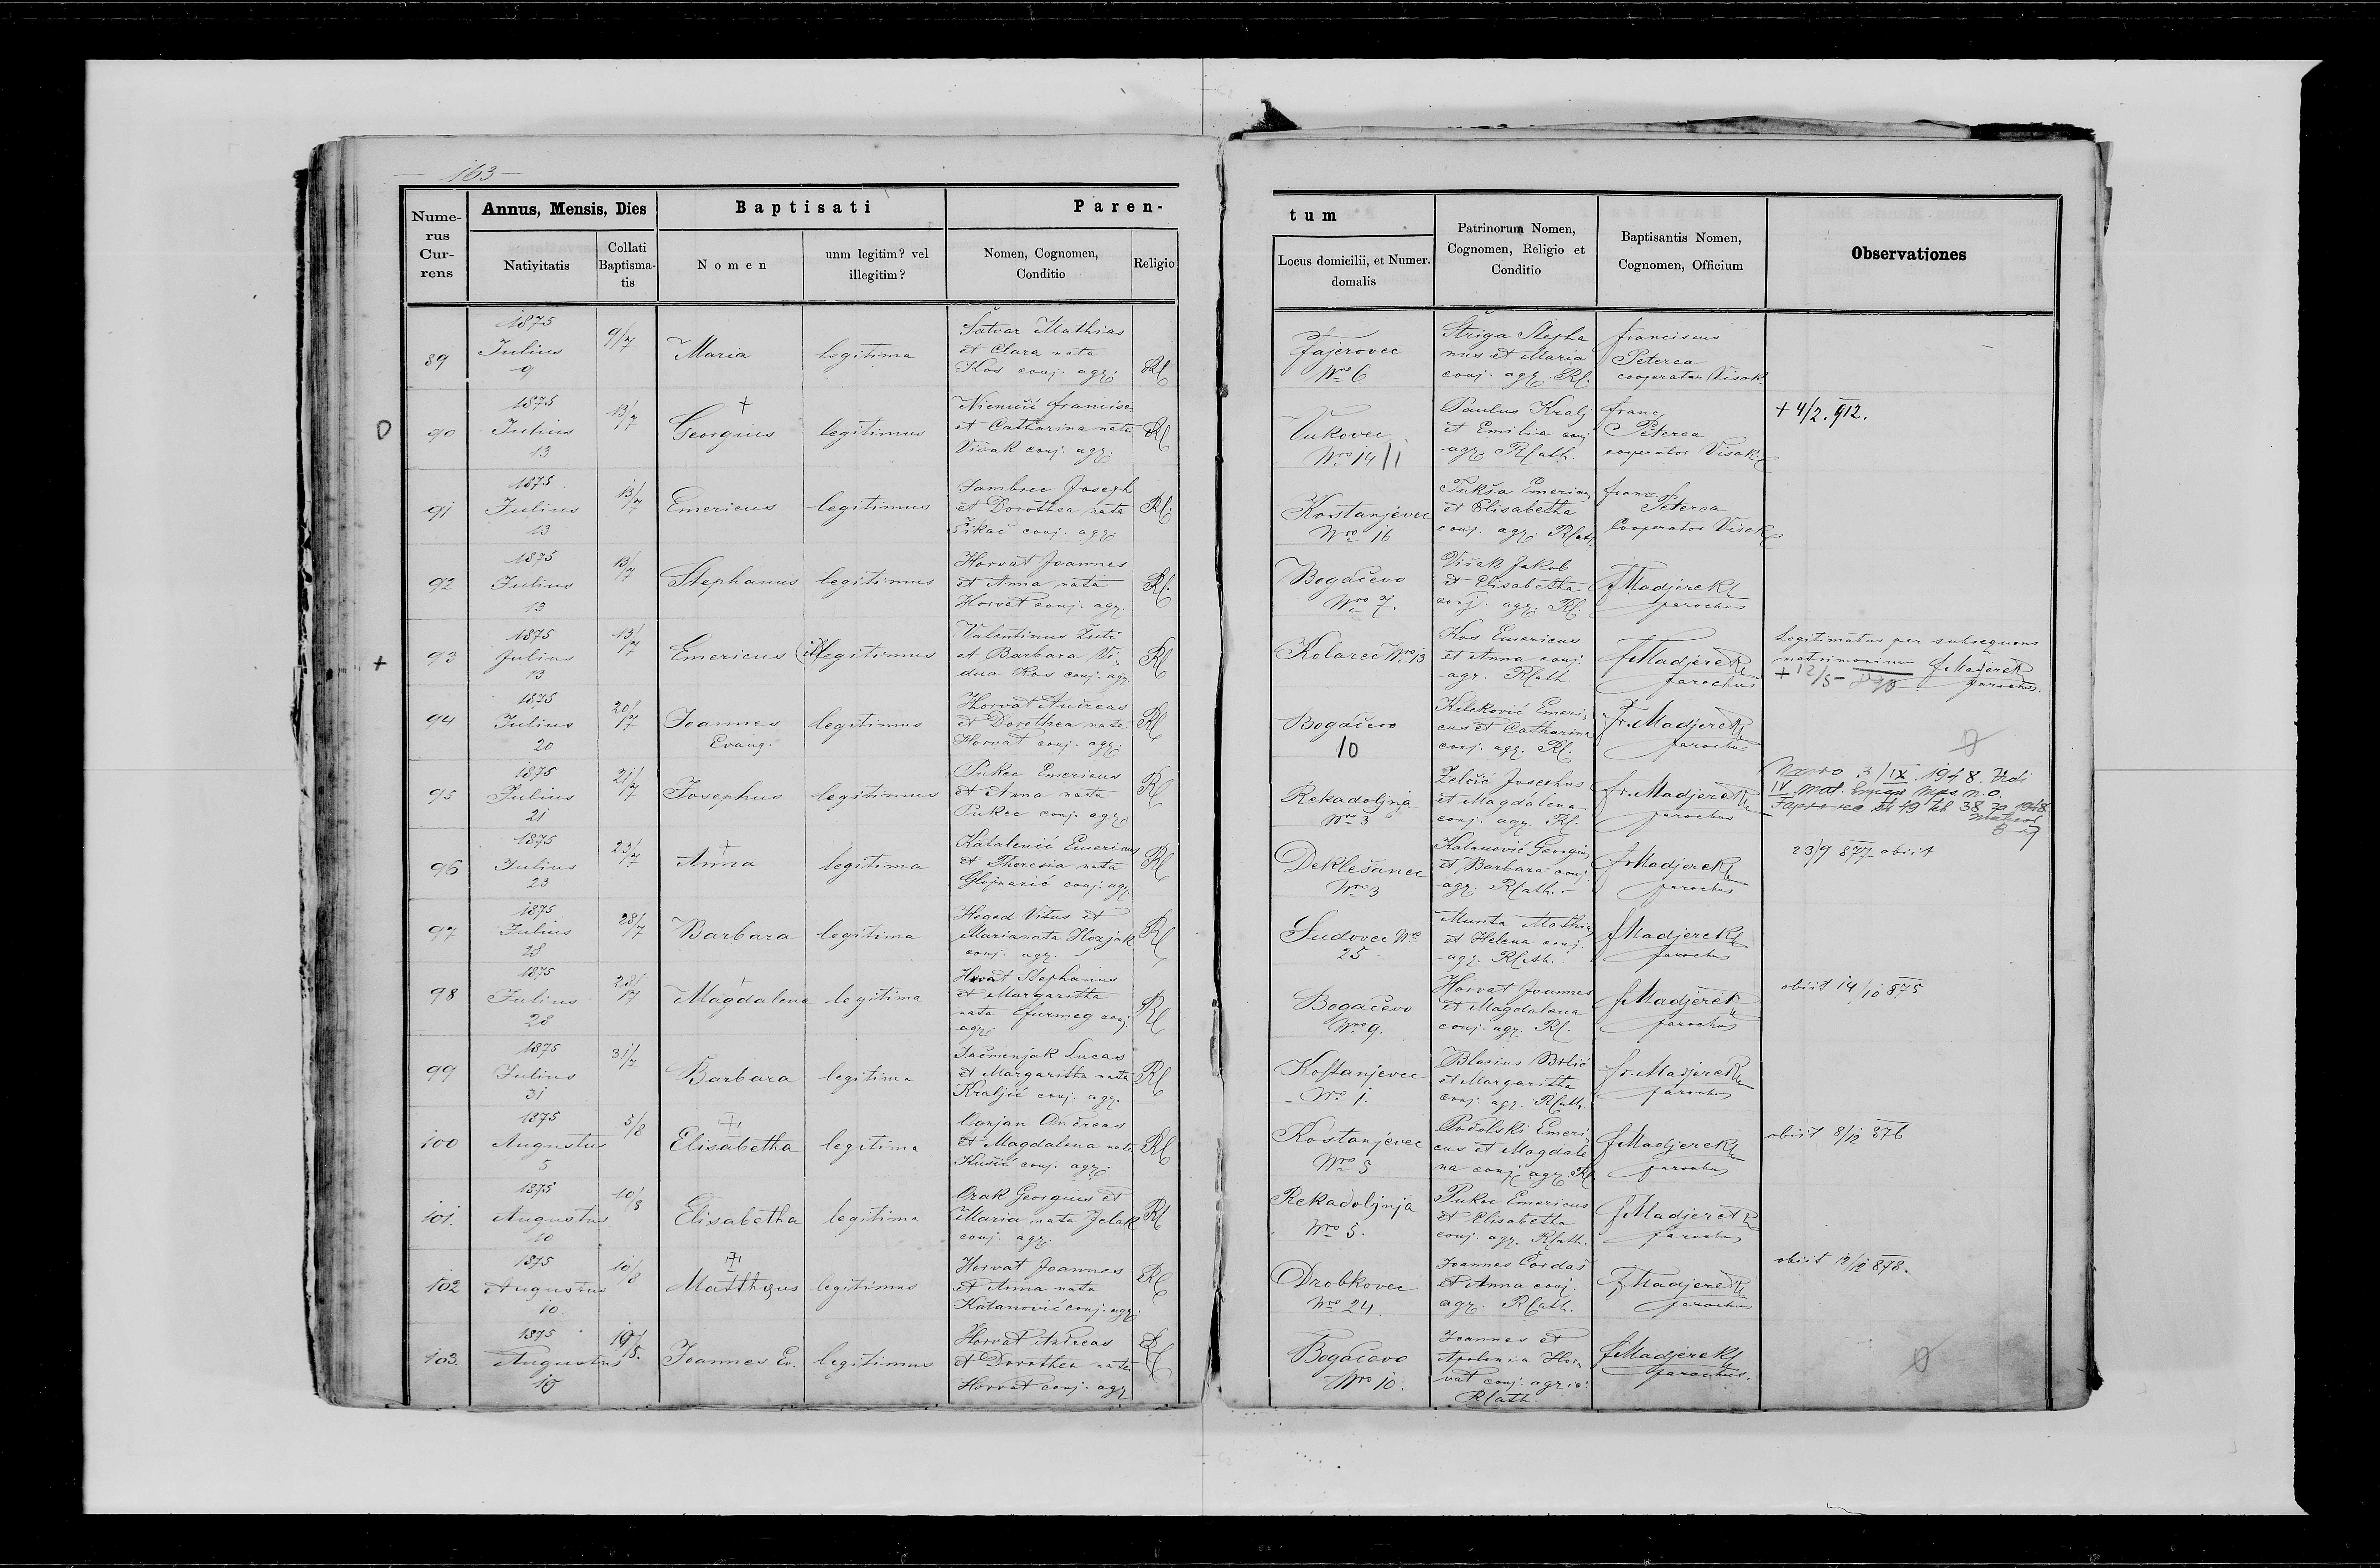 — 163 —
Nume-
rus
Cur-
rens
Annus, Mensis, Dies
Nativitatis
Collati
Baptisma-
tis
Baptisati
Nomen
unm legitim? vel
illegitim?
Paren-
Nomen, Cognomen,
Conditio
Religio
tum
Locus domicilii, et Numer.
domalis
Patrinorum Nomen,
Cognomen, Religio et
Conditio
Baptisantis Nomen,
Cognomen, Officium
Observationes
89
1875
Julius
9
9/7
Maria
legitima
Šatvar Mathias
et Clara nata
Kos conj. agr.
RC
Fajerovec
Nro 6
Štriga Stepha
nus et Maria
conj. agr. RC.
Franciscus
Peterca
cooperator Visok
90
1875
Julius
13
13/7
+
Georgius
legitimus
Niemčić Francisc
et Catharina nata
Višak conj. agr.
RC
Vukovec
Nro 14/1
Paulus Kralj
et Emilia conj
agr. RCath.
Franc
Peterca
cooperator Visok
+ 4/2. 912.
91
1875
Julius
13
13/7
Emericus
legitimus
Jambrec Joseph
et Dorothea nata
Šikač conj. agr.
RC.
Kostanjevec
Nro 16
Tukša Emericus
et Elisabetha
conj. agr. RCath.
Franc.
Peterca
Cooperator Visok
92
1875
Julius
13
13/7
Stephanus
legitimus
Horvat Joannes
et Anna nata
Horvat conj. agr.
RC.
Bogačevo
Nro 7.
Višak Jakob
et Elisabetha
conj. agr. RC.
FMadjerek
parochus
+
93
1875
Julius
13
13/7
Emericus
(il)legitimus
Valentinus Žuti
et Barbara Vi-
dua Kos conj. agr.
RC
Kolarec Nro 13
Kos Emericus
et Anna conj.
agr. RCath.
FMadjerek
parochus
Legitimatus per subsequens
matrimonium FMadjerek
parochus.
+ 12/5 -
94
1875
Julius
20
20/7
Joannes
Evang.
legitimus
Horvat Andreas
et Dorothea nata
Horvat conj. agr.
RC
Bogačevo
10
Keleković Emeri-
cus et Catharina
conj. agr. RC.
Fr. Madjerek
parochus
95
1875
Julius
21
21/7
Josephus
legitimus
Pukec Emericus
et Anna nata
Pukec conj. agr.
RC
Rekadoljnja
Nro 3
Zelčić Josephus
et Magdalena
conj. agr. RC.
Fr. Madjerek
parochus
Umro 3/IX. 1948. Vidi
IV. mat. knjigu
str 49 tek 38 za 1948
96
1875
Julius
23
23/7
+
Anna
legitima
Katalenić Emericus
et Theresia nata
Glojnarić conj. agr.
RC
Deklešanec
Nro 3
Katanović Georgius
et Barbara conj.
agr. RCath. -
FrMadjerek
parochus
23/9 877 obiit
97
1875
Julius
28
28/7
Barbara
legitima
Heged Vitus et
Maria nata Hozjak
conj. agr.
RC
Sudovec Nro
25.
Munta Mathias
et Helena conj.
agr. RCath.
FMadjerek
parochus
98
1875
Julius
28
28/7
+
Magdalena
legitima
Horvat Stephanus
et Margaritha
nata Gjurmeg conj.
agr.
RC
Bogačevo
Nro 9.
Horvat Joannes
et Magdalena
conj. agr. RC.
FMadjerek
parochus
obiit 14/10 875
99
1875
Julius
31
31/7
Barbara
legitima
Ječmenjak Lucas
et Margaritha nata
Kraljić conj. agr.
RC
Kostanjevec
Nro 1.
Blasius Brlić
et Margaritha
conj. agr. RCath.
Fr. Madjerek
parochus
100
1875
Augustus
5
5/8
+
Elisabetha
legitima
Canjan Andreas
et Magdalena nata
Kušić conj. agr.
RC
Kostanjevec
Nro 5
Podolski Emeri-
cus et Magdale
na conj. agr. RC
FMadjerek
parochus
obiit 8/12 876
101.
1875
Augustus
10
10/8
Elisabetha
legitima
Orak Georgius et
Maria nata Jelak
conj. agr.
RC
Rekadoljnja
Nro 5.
Pukec Emericus
et Elisabetha
conj. agr. RCath.
FMadjerek
parochus
102
1875
Augustus
10.
10/8
+
Mattheus
legitimus
Horvat Joannes
et Anna nata
Katanović conj. agr.
RC
Drobkovec
Nro 24.
Joannes Čordaš
et Anna conj.
agr. RCath.
FMadjerek
parochus
obiit 12/12 878.
103.
1875
Augustus
10
10/8.
Joannes Ev.
legitimus
Horvat Andreas
et Dorothea nata
Horvat conj. agr
RC
Bogačevo
Nro 10.
Joannes et
Apolonia Hor-
vat conj. agric.
RCath.
FMadjerek
parochus.